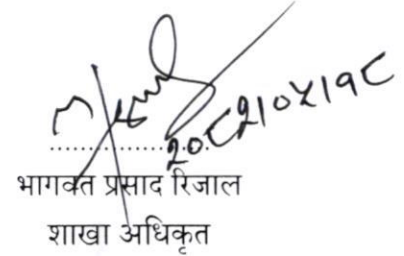 २०८२१०४११८
भागवत प्रसाद रिजाल
शाखा अधिकृत